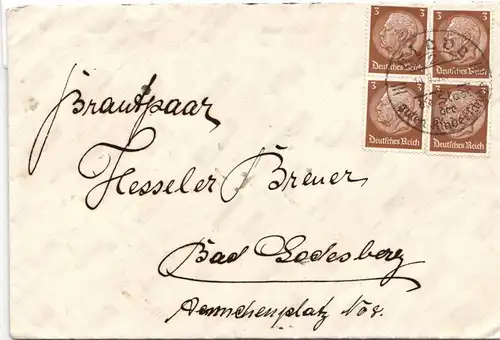 3 3
Deutsches Reich Deutsches Reich
3 3
Deutsches Reich Deutsches Reich
Brautpaar
Hesseler Breuer
Bad Godesberg
Aennchenplatz No 8.